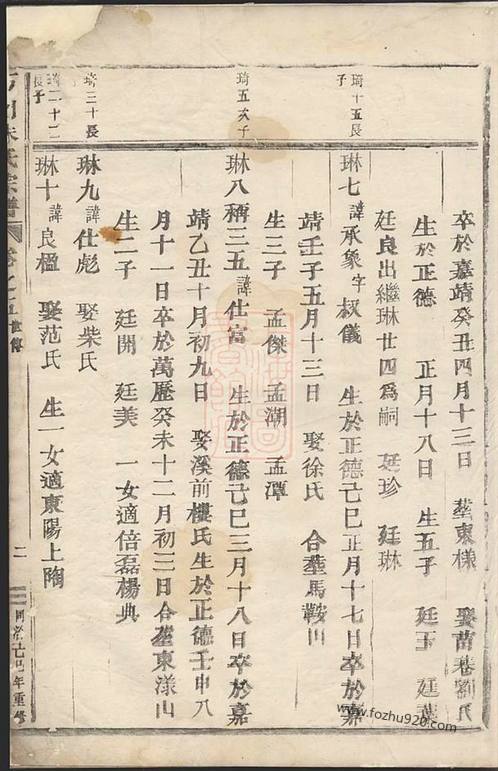 卒於嘉靖癸丑四月十三日 塟東樣 娶苗巷劉氏
生於正德 正月十八日 生五子 廷玉 廷
廷良出繼琳廿四爲嗣 廷珍 廷琳
琦十五長子
琳七諱承象字叔儀 生於正德己巳正月十七日卒於嘉
靖壬子五月十三日 娶徐氏 合塟馬鞍山
生三子 孟傑 孟湖 孟潭
琦五次子
琳八稱三五諱仕富 生於正德己巳三月十八日卒於嘉
靖乙丑十月初九日 娶溪前樓氏生於正德壬申八
月十一日卒於萬歷癸未十二月初三日合塟東漾山
生二子 廷開 廷美 一女適倍磊楊典
琦三十長
琳九諱仕彪 娶柴氏
琦二十二長子
琳十諱良楹 娶范氏 生一女適東陽上陶
朱氏宗譜 卷之 世傳 二 同治己巳年重修
www.fozhu920.com